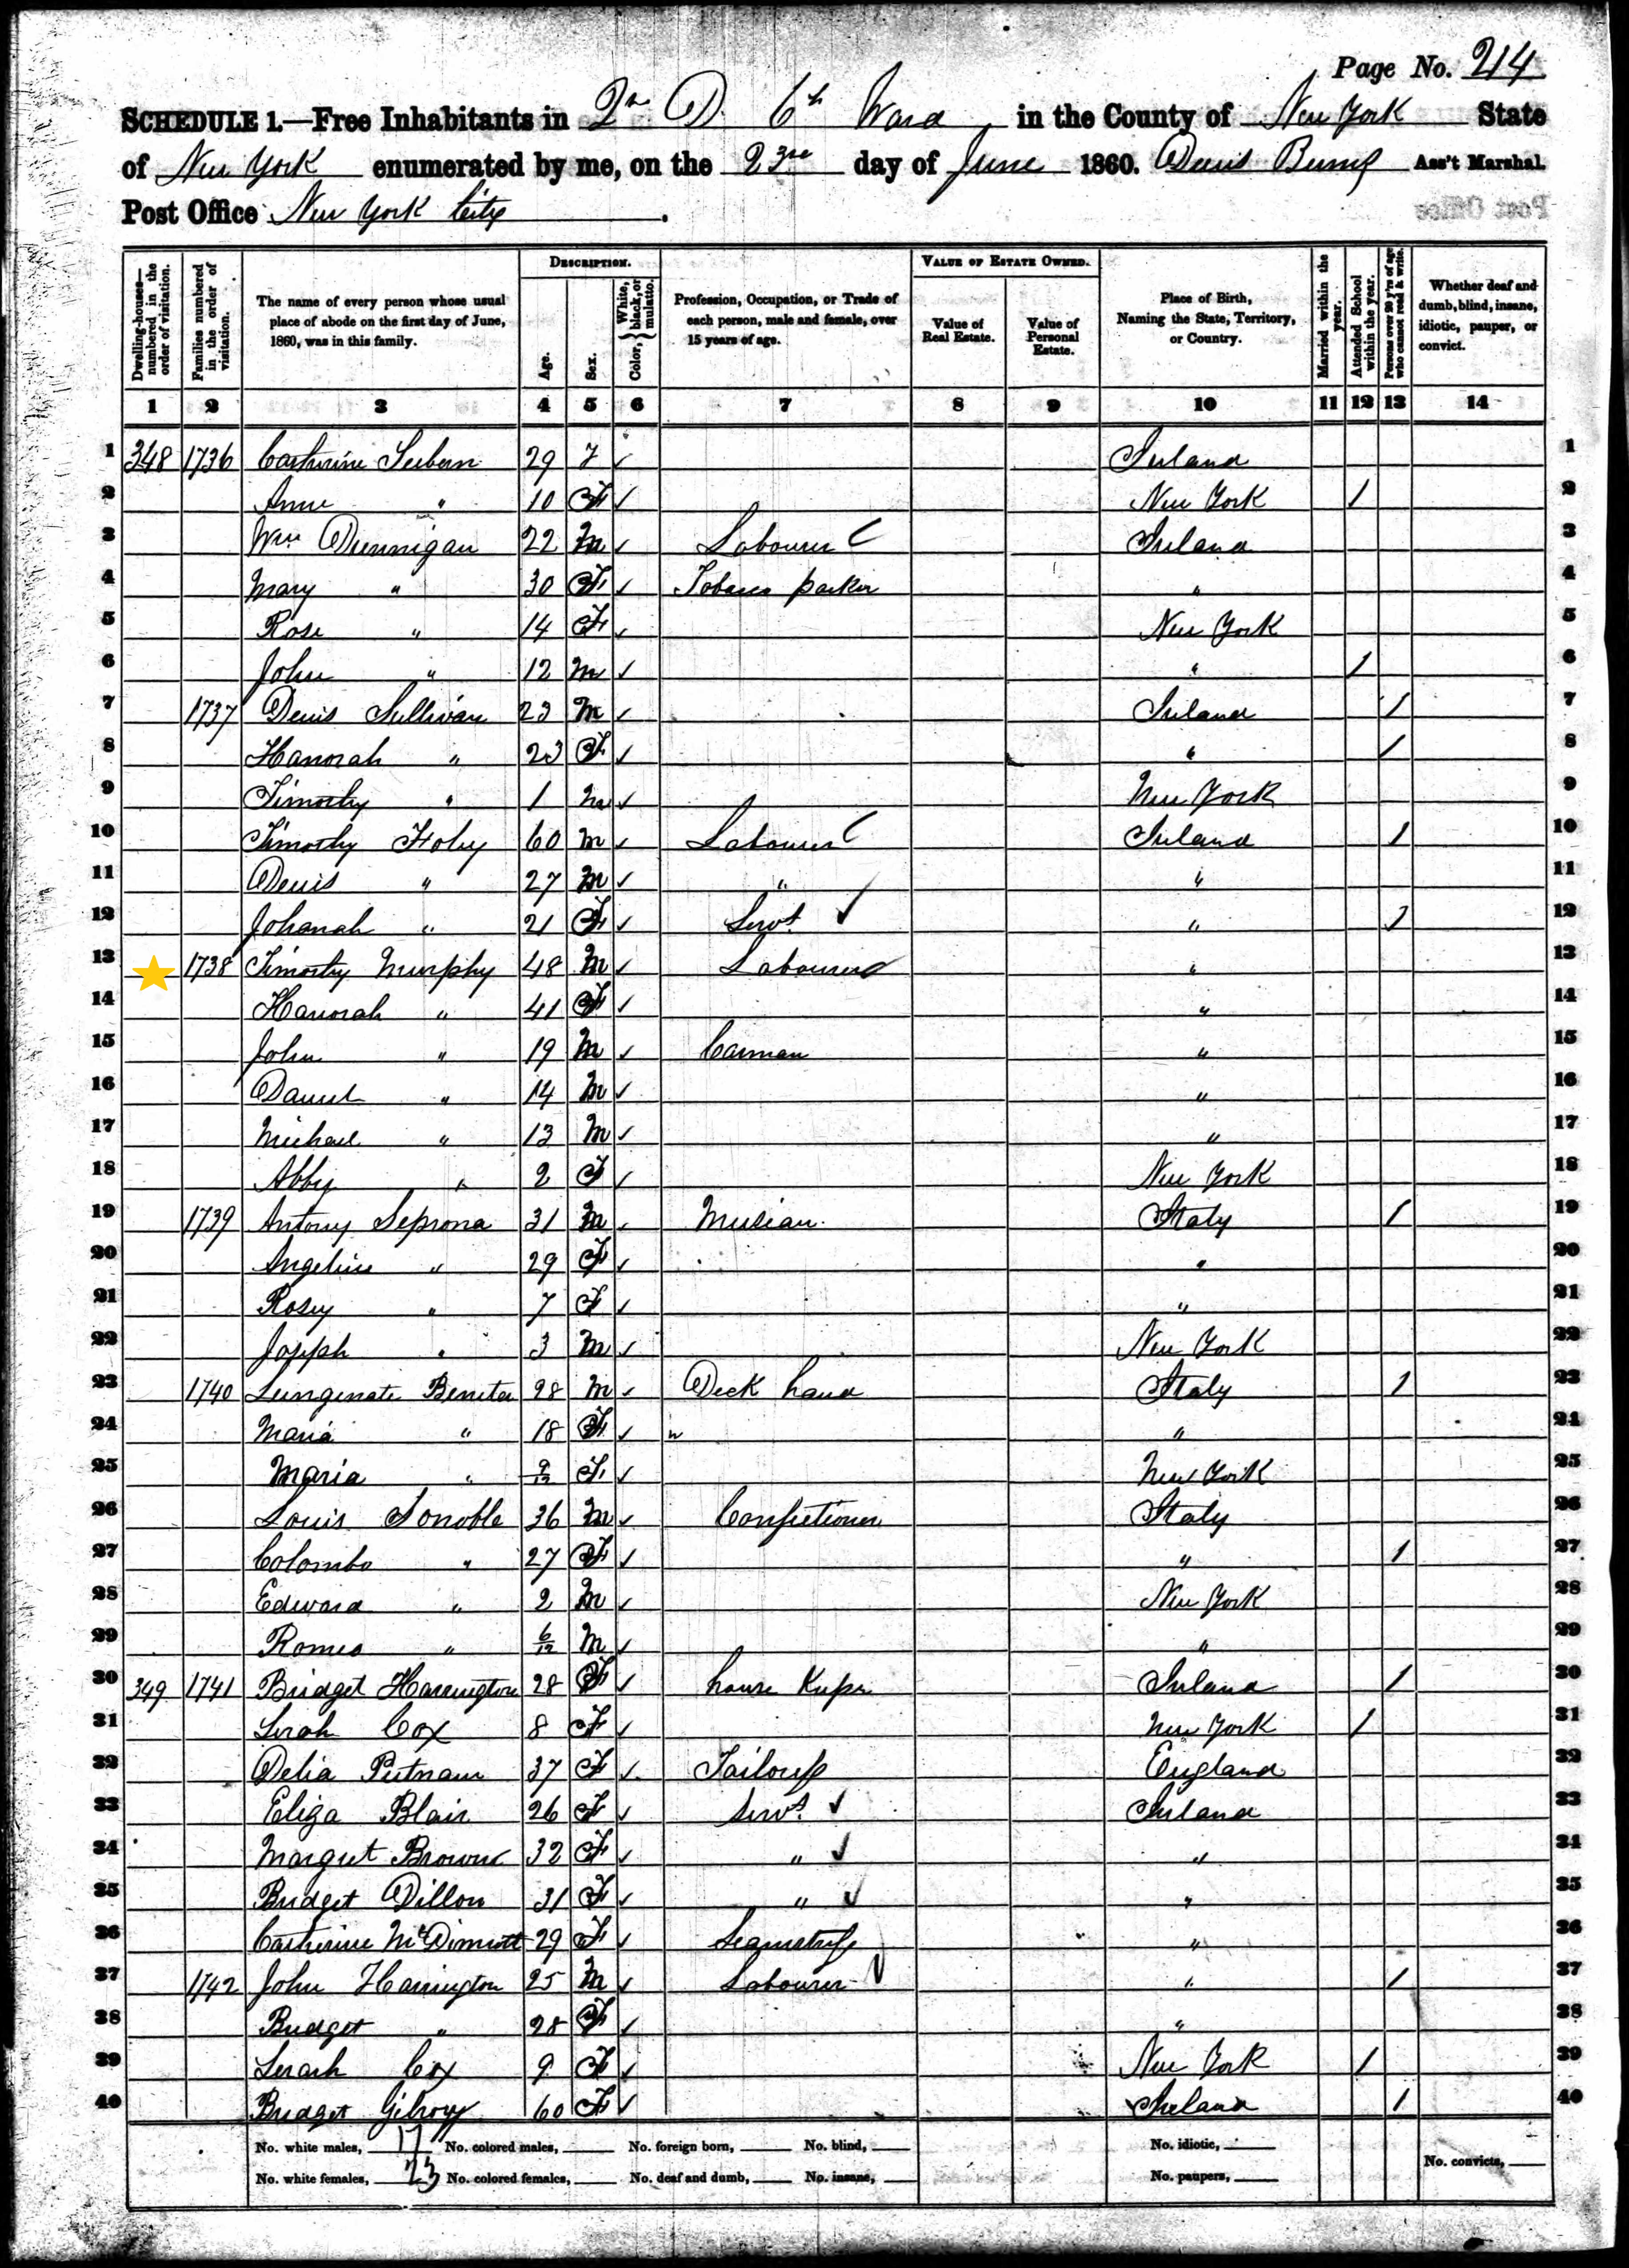 Page No. 214
SCHEDULE 1.—Free Inhabitants in 2nd D. 6th Ward in the County of New York State
of New York enumerated by me, on the 23rd day of June 1860. Ass't Marshal.
Post Office New York City.
Post Office
Dwelling-houses—numbered in the order of visitation.
Families numbered in the order of visitation.
The name of every person whose usual place of abode on the first day of June, 1860, was in this family.
DESCRIPTION.
Age.
Sex.
Color, { White, black, or mulatto.
Profession, Occupation, or Trade of each person, male and female, over 15 years of age.
VALUE OF ESTATE OWNED.
Value of Real Estate.
Value of Personal Estate.
Place of Birth, Naming the State, Territory, or Country.
Married within the year.
Attended School within the year.
Persons over 20 y'rs of age who cannot read & write.
Whether deaf and dumb, blind, insane, idiotic, pauper, or convict.
1 2 3 4 5 6 7 8 9 10 11 12 13 14
1 348 1736 Catherine 29 F ✓ Ireland 1
2 Anne " 10 F ✓ New York / 2
3 Wm Dunnigan 22 M ✓ Labourer Ireland 3
4 Mary " 30 F ✓ Tobacco packer " 4
5 Rose " 14 F ✓ New York 5
6 John " 12 M ✓ " / 6
7 1737 Denis Sullivan 23 M ✓ Ireland / 7
8 Hanorah " 23 F ✓ " / 8
9 Timothy " 1 M ✓ New York 9
10 Timothy Foley 60 M ✓ Labourer Ireland / 10
11 Denis " 27 M ✓ " " 11
12 Johanah " 21 F ✓ Servt ✓ " / 12
13 1738 Timothy Murphy 48 M ✓ Labourer " 13
14 Hanorah " 41 F ✓ " 14
15 John " 19 M ✓ Carman " 15
16 Daniel " 14 M ✓ " 16
17 Michael " 13 M ✓ " 17
18 Abby " 2 F ✓ New York 18
19 1739 Antony Seprona 31 M ✓ Musician Italy / 19
20 Angeline " 29 F ✓ " 20
21 Rosey " 7 F ✓ " 21
22 Joseph " 3 M ✓ New York 22
23 1740 Benita 28 M ✓ Deck hand Italy / 23
24 Maria " 18 F ✓ " " 24
25 Maria " 9/12 F ✓ New York 25
26 Louis Sonoble 36 M ✓ Confectioner Italy 26
27 Colombo " 27 F ✓ " / 27
28 Edward " 2 M ✓ New York 28
29 Romeo " 6/12 M ✓ " 29
30 349 1741 Bridget Harrington 28 F ✓ house Keeper Ireland / 30
31 Serah Cox 8 F ✓ New York / 31
32 Delia Putnam 37 F ✓ Tailoress England 32
33 Eliza Blair 26 F ✓ Servt. ✓ Ireland 33
34 Margret Browne 32 F ✓ " ✓ " 34
35 Bridget Dillon 31 F ✓ " ✓ " 35
36 Catherine McDimott 29 F ✓ Seamstress " 36
37 1742 John Harrington 25 M ✓ Labourer ✓ " / 37
38 Bridget " 28 F ✓ " 38
39 Serah Cox 9 F ✓ New York / 39
40 Bridget Gilroy 60 F ✓ Ireland / 40
No. white males, 17 No. colored males, No. foreign born, No. blind, No. idiotic,
No. white females, 23 No. colored females, No. deaf and dumb, No. insane, No. paupers, No. convicts,